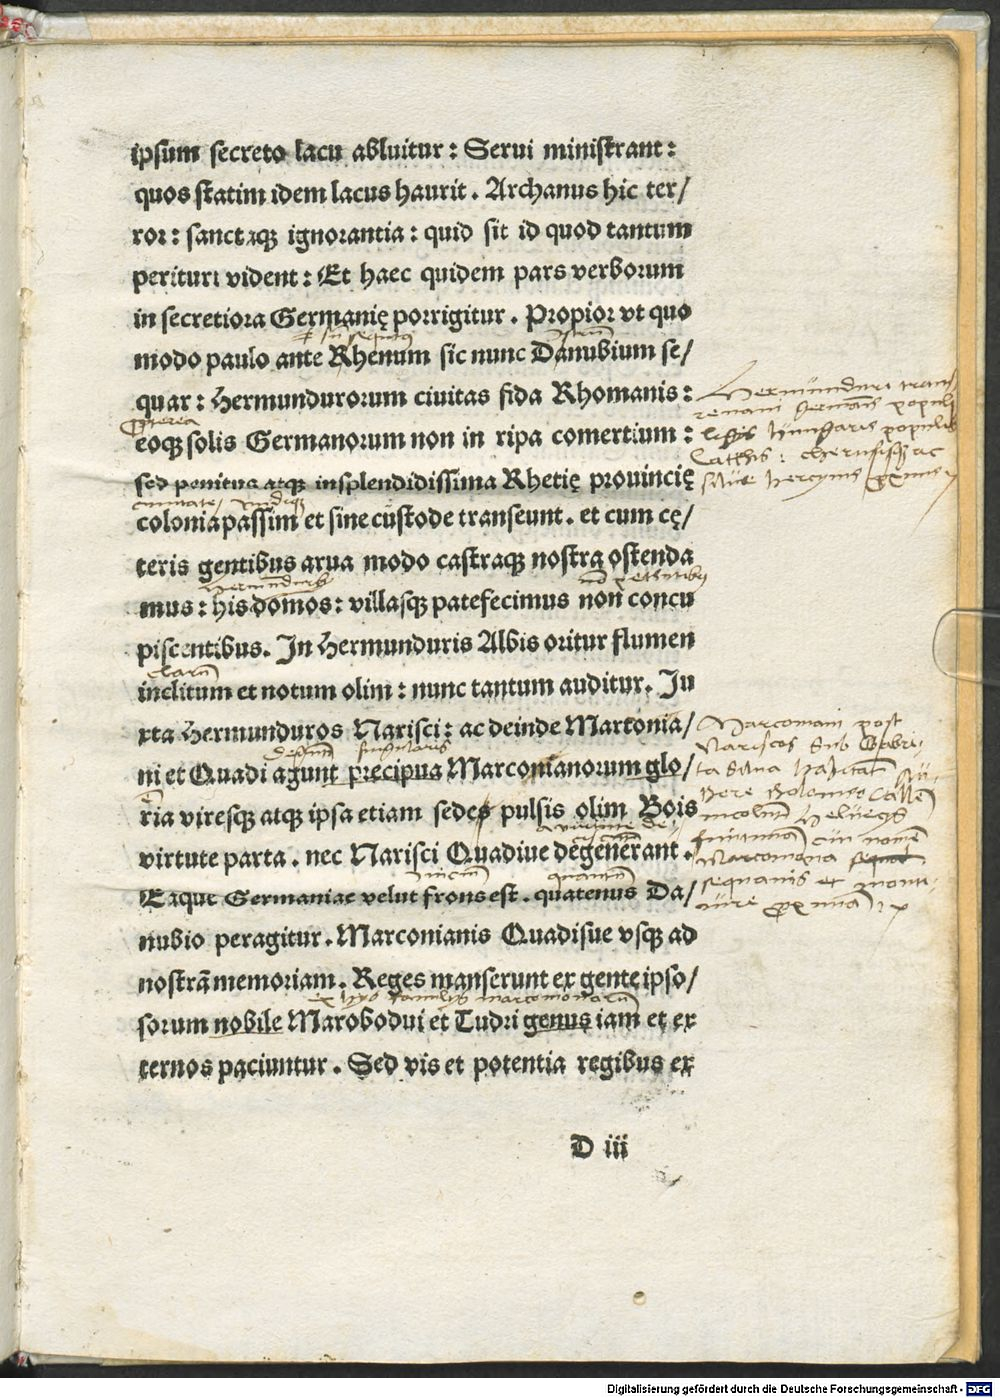 ipsum secreto lacu abluitur: Serui ministrant:
quos statim idem lacus haurit. Archanus hic ter/
ror: sanctaqꝫ ignorantia: quid sit id quod tantum
perituri vident: Et haec quidem pars verborum
in secretiora Germanię porrigitur. Propior vt quo
modo paulo ante Rhenum sic nunc Danubium se/
quar: Hermundurorum ciuitas fida Rhomanis:
Hermunduri trans/
renani populi
populis
ac
propterea
eoqꝫ solis Germanorum non in ripa comertium:
sed penitus atqꝫ in splendidissima Rhetię prouincię
ciuitate / vndiqꝫ
colonia passim et sine custode transeunt. et cum cę/
teris gentibus arua modo castraqꝫ nostra ostenda
hermunduris
mus: his domos: villasqꝫ patefecimus non concu
piscentibus. In Hermunduris Albis oritur flumen
clarū
inclitum et notum olim: nunc tantum auditur. Iu
xta Hermunduros Narisci: ac deinde Marconia/
Marcomani post
Nariscos sub Gabri/
ta silua habitant
singularis
ni et Quadi agunt precipua Marconianorum glo/
ria viresqꝫ atqꝫ ipsa etiam sedes pulsis olim Bois
virtute parta. nec Narisci Quadiue degenerant.
quantū
Eaque Germaniae velut frons est. quatenus Da/
sequanis et
nubio peragitur. Marconianis Quadisue vsqꝫ ad
nostrā memoriam. Reges manserunt ex gente ipso/
familijs marcomonarū
sorum nobile Marobodui et Tudri genus iam et ex
ternos paciuntur. Sed vis et potentia regibus ex
D iii
Digitalisierung gefördert durch die Deutsche Forschungsgemeinschaft - DFG